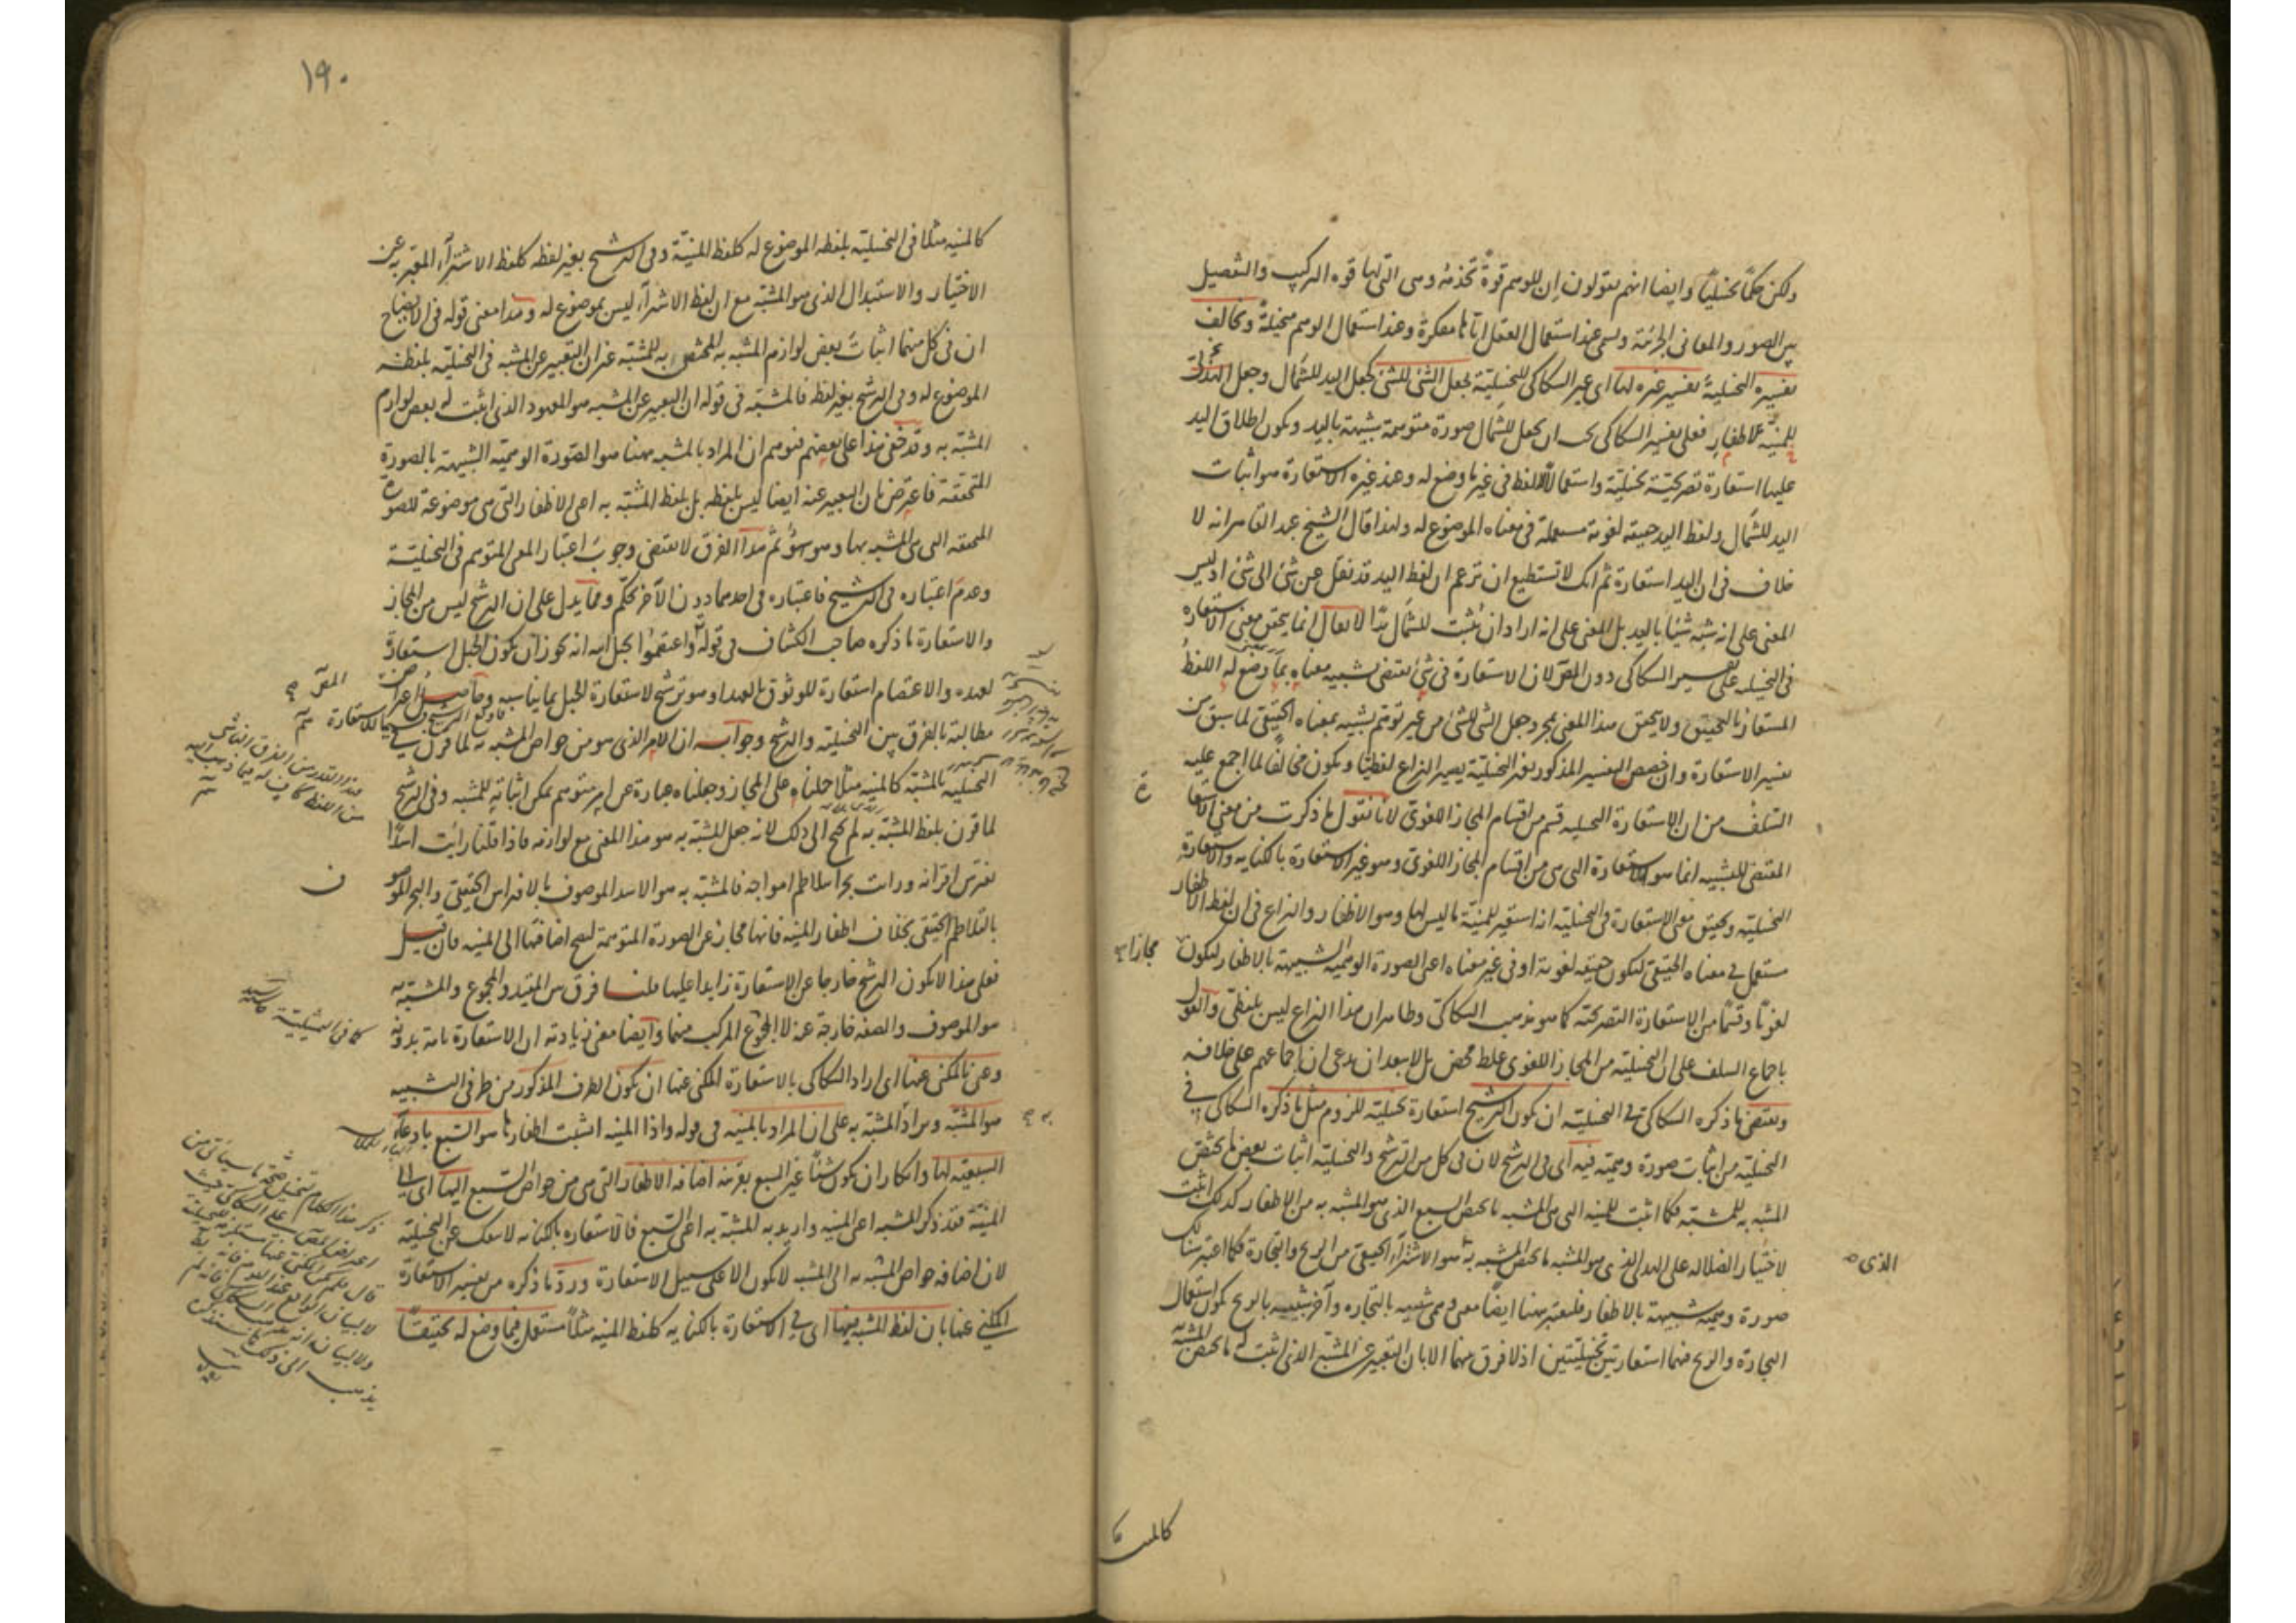 ولكن حكما تخيليا وايضا انهم يقولون ان للوهم قوة تخدمه وهى التى لها قوة التركيب والتفصيل
بين الصور والمعانى الجزئية وتسمى عند استعمال العقل اياها مفكرة وعند استعمال الوهم متخيلة ويخالف
تفسيره التخييلية تفسير غيره لها اى غير السكاكى للتخييلية بجعل الشئ للشئ كجعل اليد للشمال وجعل
للمنية الاظفار فعلى تفسير السكاكى يجب ان يجعل للشمال صورة متوهمة شبيهة باليد ويكون اطلاق اليد
عليها استعارة تصريحية تخييلية واستعمالا للفظ فى غير ما وضع له وعند غيره الاستعارة هو اثبات
اليد للشمال ولفظ اليد حقيقة لغوية مستعملة فى معناه الموضوع له ولهذا قال الشيخ عبد القاهر انه لا
خلاف فى ان اليد استعارة ثم انك لا تستطيع ان تزعم ان لفظ اليد قد نقل عن شئ الى شئ اذ ليس
المعنى على انه شبه شيئا باليد بل المعنى على انه اراد ان يثبت للشمال يدا لا يقال انما يتحقق معنى الاستعارة
فى التخييلية على تفسير السكاكى دون المص لان الاستعارة فى شئ تقتضى تشبيه معناه بما وضع له اللفظ
المستعار بالتحقيق ولا يتحقق هذا المعنى بمجرد جعل الشئ للشئ من غير توهم تشبيه بمعناه الحقيقى لما سبق من
تفسير الاستعارة وان خصص التفسير المذكور بغير التخييلية يصير النزاع لفظيا ويكون مخالفا لما اجمع عليه
السلف من ان الاستعارة التخييلية قسم من اقسام المجاز اللغوى لانا نقول ما ذكرت من معنى الاستعارة
المقتضى للتشبيه انما هو الاستعارة التى هى من اقسام المجاز اللغوى وهو غير الاستعارة بالكناية والاستعارة
التخييلية وتحقيق معنى الاستعارة فى التخييلية انه استعير للمنية ما ليس لها وهو الاظفار والنزاع فى ان لفظ الاظفار
مستعمل فى معناه الحقيقى ليكون حقيقة لغوية او فى غير معناه اعنى الصورة الوهمية الشبيهة بالاظفار ليكون مجازا
لغويا وقسما من الاستعارة التصريحية كما هو مذهب السكاكى وظاهر ان هذا النزاع ليس بلفظى والقول
باجماع السلف على ان التخييلية من المجاز اللغوى غلط محض بل لا يبعد ان يدعى ان اجماعهم على خلافه
ويقتضى ما ذكره السكاكى فى التخييلية ان يكون الترشيح استعارة تخييلية للزوم مثل ما ذكره السكاكى فى
التخييلية من اثبات صورة وهمية فيه اى فى الترشيح لان فى كل من الترشيح والتخييلية اثبات بعض ما يختص
المشبه به للمشبه فكما اثبت للمنية التى هى المشبه ما يختص السبع الذى هو المشبه به من الاظفار كذلك اثبت
لاختيار الضلالة على الهدى الذى هو المشبه ما يختص المشبه به الذى هو الاشتراء الحقيقى من الربح والتجارة فكما اعتبر هنالك
صورة وهمية شبيهة بالاظفار فليعتبر ههنا ايضا معنى وهمى شبيه بالتجارة وآخر شبيه بالربح ليكون استعمال
التجارة والربح فيهما استعارتين تخييليتين اذ لا فرق بينهما الا بان التعبير عن المشبه الذى اثبت له ما يختص المشبه
١٩٠
كالمنية مثلا فى التخييلية بلفظه الموضوع له كلفظ المنية وفى الترشيح بغير لفظه كلفظ الاشتراء المعبر به عن
الاختيار والاستبدال الذى هو المشبه مع ان لفظ الاشتراء ليس بموضوع له وهذا معنى قوله فى الايضاح
ان فى كل منهما اثبات بعض لوازم المشبه به المختص به للمشبه غير ان التعبير عن المشبه فى التخييلية بلفظه
الموضوع له وفى الترشيح بغير لفظه فالمشبه فى قوله ان التعبير عن المشبه هو المعهود الذى اثبت له بعض لوازم
المشبه به وقد خفى هذا على بعضهم فتوهم ان المراد بالمشبه ههنا هو الصورة الوهمية الشبيهة بالصورة
المتحققة فاعترض بان التعبير عنه ايضا ليس بلفظه بل بلفظ المشبه به اعنى الاظفار التى هى موضوعة للصورة
المتحققة التى هى المشبه بها وهو سهو ثم هذا الفرق لا يقتضى وجوب اعتبار المعنى المتوهم فى التخييلية
وعدم اعتباره فى الترشيح فاعتباره فى احدهما دون الآخر تحكم ومما يدل على ان الترشيح ليس من المجاز
والاستعارة ما ذكره صاحب الكشاف فى قوله واعتصموا بحبل الله انه يجوز ان يكون الحبل استعارة
لعهده والاعتصام استعارة للوثوق بالعهد او هو ترشيح لاستعارة الحبل بما يناسبه وحاصل اعتراض
مطالبة بالفرق بين التخييلية والترشيح وجوابه ان الامر الذى هو من خواص المشبه به لما قرن فى
التخييلية بالمشبه كالمنية مثلا حملناه على المجاز وجعلناه عبارة عن امر متوهم يمكن اثباته للمشبه وفى الترشيح
لما قرن بلفظ المشبه به لم يحتج الى ذلك لانه جعل المشبه به هو هذا المعنى مع لوازمه فاذا قلنا رايت اسدا
يفترس اقرانه ورايت بحرا يتلاطم امواجه فالمشبه به هو الاسد الموصوف بالافتراس الحقيقى والبحر الموصوف
بالتلاطم الحقيقى بخلاف اظفار المنية فانها مجاز عن الصورة المتوهمة ليصح اضافتها الى المنية فان قيل
فعلى هذا لا يكون الترشيح خارجا عن الاستعارة زايدا عليها قلنا فرق بين المقيد والمجموع والمشبه به
هو الموصوف والصفة خارجة عنه لا المجموع المركب منهما وايضا معنى زيادته ان الاستعارة تامة بدونه
وعنى بالمكنى عنها اى اراد السكاكى بالاستعارة المكنى عنها ان يكون الطرف المذكور من طرفى التشبيه
هو المشبه ويراد المشبه به على ان المراد بالمنية فى قوله واذا المنية انشبت اظفارها هو السبع بادعاء
السبعية لها وانكار ان يكون شيئا غير السبع بقرينة اضافة الاظفار التى هى من خواص السبع اليها اى الى
المنية فقد ذكر المشبه اعنى المنية واريد به المشبه به اعنى السبع فالاستعارة بالكناية لا تنفك عن التخييلية
لان اضافة خواص المشبه به الى المشبه لا يكون الا على سبيل الاستعارة ورد ما ذكره من تفسير الاستعارة
المكنى عنها بان لفظ المشبه فيها اى فى الاستعارة بالكناية كلفظ المنية مثلا مستعمل فيما وضع له تحقيقا